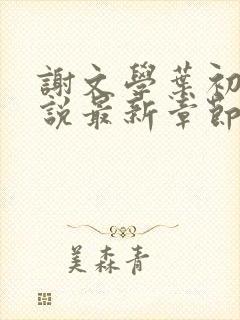 謝文學葉初
說最新章節
美森青